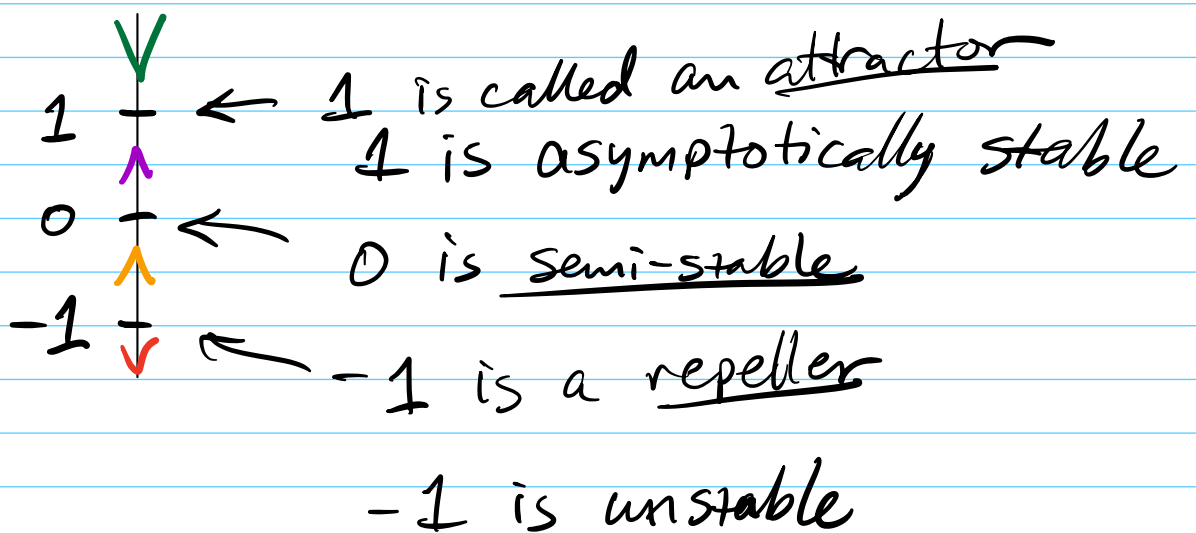 1 1 is called an attractor
1 is asymptotically stable
0 0 is semi-stable
-1 -1 is a repeller
-1 is unstable